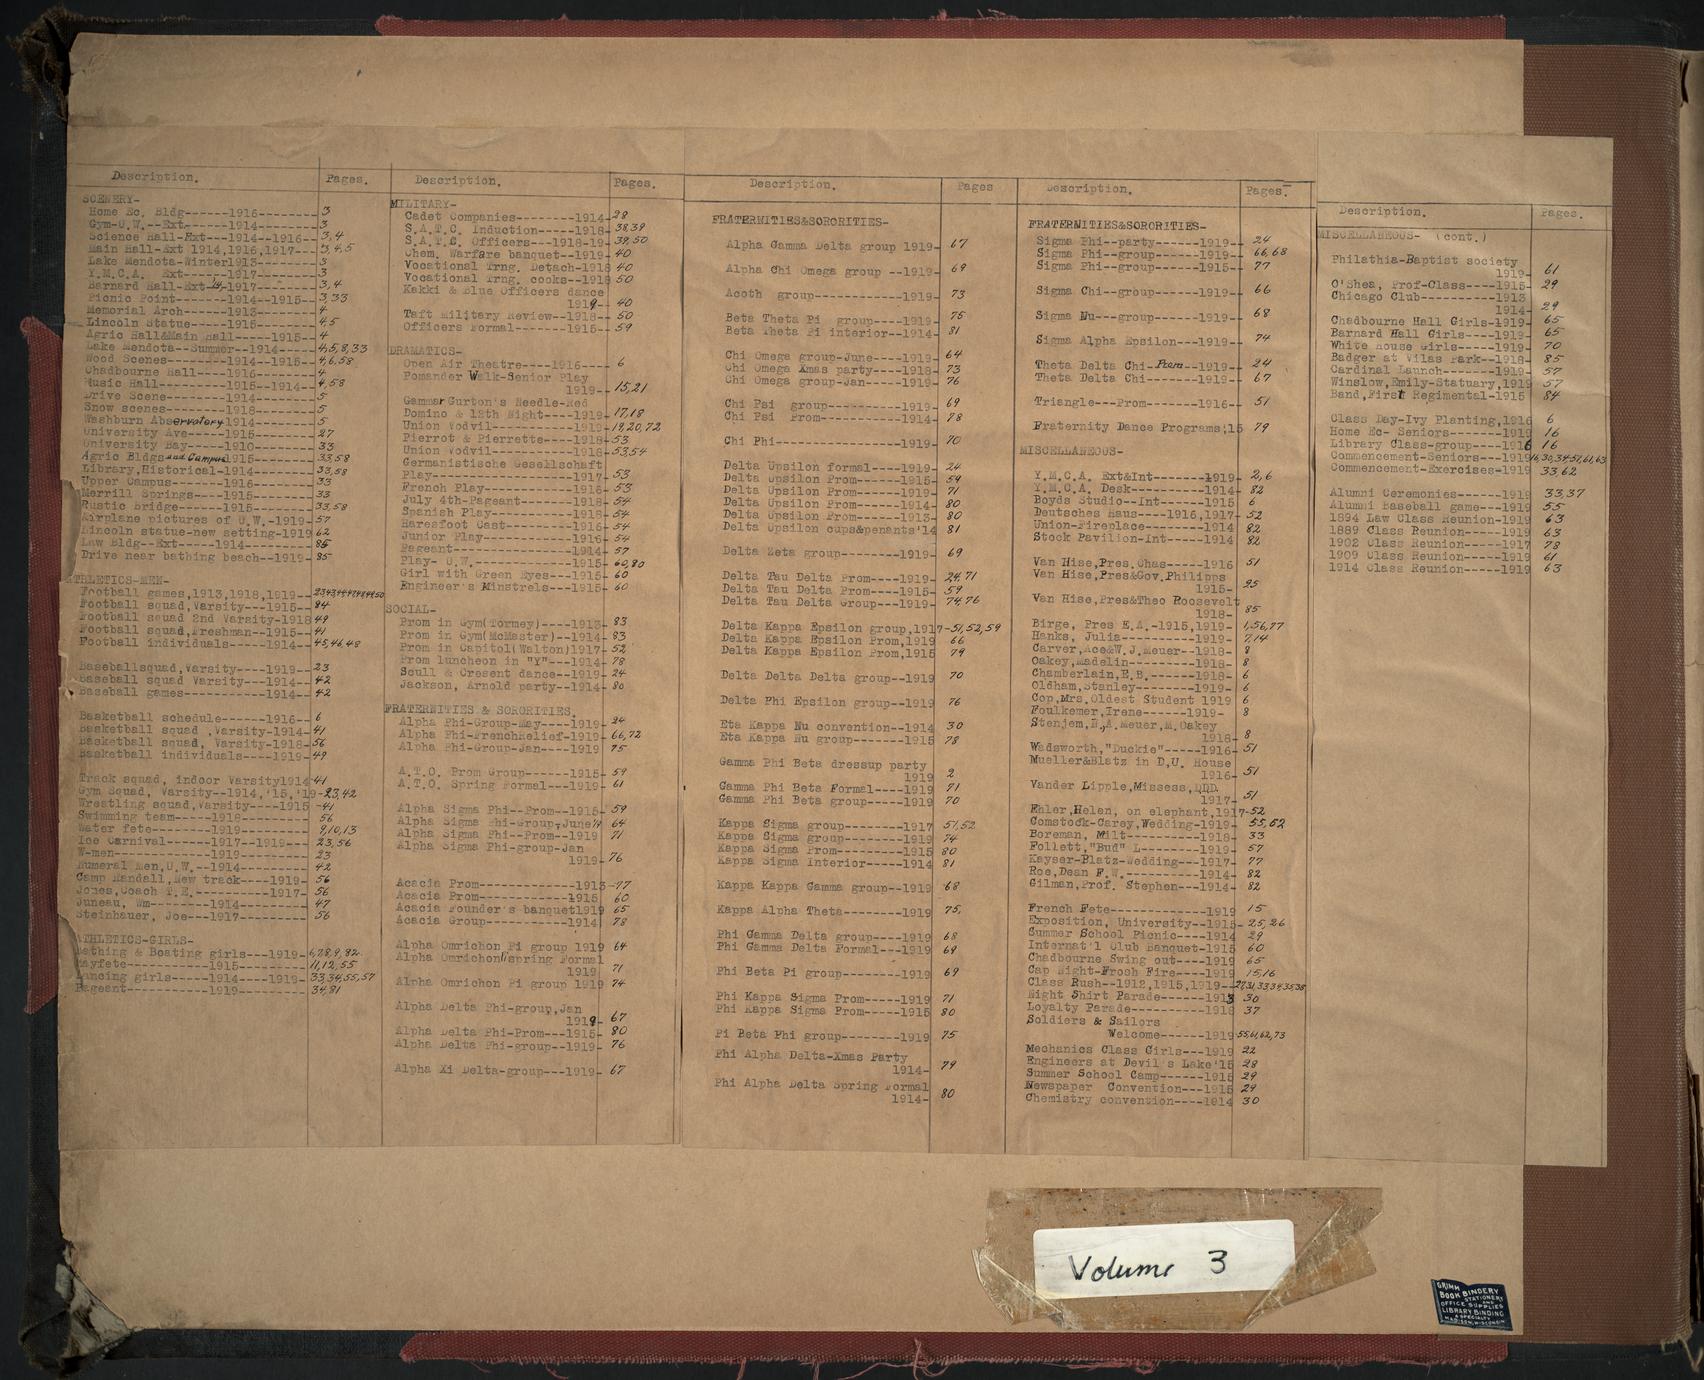 Description. Pages.
SCENERY-
Home Ec. Bldg------1916-------- 3
Gym-U.W.--Ext------1914-------- 3
Science Hall-Ext---1914--1916-- 3,4
Main Hall--Ext 1914,1916,1917-- 3,4,5
Lake Mendota-Winter1913-------- 3
Y.M.C.A. Ext-----1917-------- 3
Barnard Hall-Ext 1917-------- 3,4
Picnic Point-----1914--1915-- 3,33
Memorial Arch------1913-------- 4
Lincoln Statue-----1915-------- 4,5
Agric Hall&Main Hall----1915-- 4
Lake Mendota--Summer--1914---- 4,5,8,33
Wood Scenes-------1914--1915-- 4,6,58
Chadbourne Hall----1916-------- 4
Music Hall--------1915--1914-- 4,58
Drive Scene-------1914-------- 5
Snow scenes-------1918-------- 5
Washburn Abservatory 1914------ 5
University Ave-----1915-------- 27
University Bay----1910-------- 33
Agric Bldgs and Campus 1915---- 33,58
Library,Historical-1914-------- 33,58
Upper Campus------1916-------- 33
Merrill Springs---1915-------- 33
Rustic Bridge-----1915-------- 33,58
Airplane pictures of U.W.-1919- 57
Lincoln statue-new setting-1919 62
Law Bldg--Ext-----1914-------- 85
Drive near bathing beach--1919- 85
ATHLETICS-MEN-
Football games,1913,1918,1919--
Football squad,Varsity--1915-- 84
Football squad 2nd Varsity-1918 49
Football squad,Freshman--1915-- 41
Football individuals----1914-- 45,46,48
Baseballsquad,Varsity---1919-- 23
Baseball squad Varsity--1914-- 42
Baseball games----------1914-- 42
Basketball schedule------1916-- 6
Basketball squad ,Varsity-1914- 41
Basketball squad, Varsity-1918- 56
Basketball individuals----1919- 49
Track squad, indoor Varsity1914 41
Gym Squad, Varsity--1914,'15,'19-23,42
Wrestling squad,Varsity----1915 -41
Swimming team-----1918-------- 56
Water fete--------1919-------- 9,10,13
Ice Carnival------1917--1919-- 23,56
W-men-------------1919-------- 23
Numeral Men,U.W.--1914-------- 42
Camp Randall,New track----1919- 56
Jones,Coach T.E.--------1917- 56
Juneau, Wm--------1914-------- 47
Steinhauer, Joe---1917-------- 56
ATHLETICS-GIRLS-
Bathing & Boating girls---1919- 6,7,8,9,82
Mayfete-----------1915-------- 11,12,55
Dancing girls-----1914--1919-- 33,34,55,57
Pageant-----------1919-------- 34,81
Description. Pages.
MILITARY-
Cadet Companies-------1914- 28
S.A.T.C. Induction----1918- 38,39
S.A.T.C. Officers---1918-19 39,50
Chem. Warfare banquet--1919- 40
Vocational Trng. Detach-1918 40
Vocational Trng. cooks--1918 50
Kakki & Blue Officers dance
1919- 40
Taft Military Review--1918- 50
Officers Formal-------1915- 59
DRAMATICS-
Open Air Theatre----1916--- 6
Pomander Walk-Senior Play
1919- 15,21
Gammar Gurton's Needle-Red
Domino & 12th Night---1919- 17,18
Union Vodvil----------1919- 19,20,72
Pierrot & Pierrette---1918- 53
Union Vodvil----------1918- 53,54
Germanistische Gesellschaft
Play------------------1917- 53
French Play-----------1916- 53
July 4th-Pageant------1918- 54
Spanish Play----------1918- 54
Haresfoot Cast--------1916- 54
Junior Play-----------1916- 54
Pageant---------------1914- 57
Play- U.W.------------1915- 60,80
Girl with Green Eyes---1915- 60
Engineer's Minstrels---1915- 60
SOCIAL-
Prom in Gym(Tormey)----1913- 83
Prom in Gym(McMaster)--1914- 83
Prom in Capitol(Walton)1917- 52
Prom luncheon in "Y"---1914- 78
Scull & Cresent dance--1919- 24
Jackson, Arnold party--1914- 80
FRATERNITIES & SORORITIES.
Alpha Phi-Group-May----1919- 24
Alpha Phi-FrenchRelief-1919- 66,72
Alpha Phi-Group-Jan----1919 75
A.T.O. Prom Group------1915- 59
A.T.O. Spring Formal---1919- 61
Alpha Sigma Phi--Prom--1915- 59
Alpha Sigma Phi-Group,June'19 64
Alpha Sigma Phi--Prom--1919 71
Alpha Sigma Phi-group-Jan
1919- 76
Acacia Prom------------1913 -77
Acacia Prom------------1915 60
Acacia Founder's banquet1919 65
Acacia Group-----------1914 78
Alpha Omrichon Pi group 1919 64
Alpha Omrichon"spring Formal
1919 71
Alpha Omrichon Pi group 1919 74
Alpha Delta Phi-group,Jan
1919- 67
Alpha Delta Phi-Prom---1915- 80
Alpha Delta Phi-group--1919- 76
Alpha Xi Delta-group---1919- 67
Description. Pages
FRATERNITIES&SORORITIES-
Alpha Gamma Delta group 1919- 67
Alpha Chi Omega group --1919- 69
Acoth group------------1919- 73
Beta Theta Pi group---1919- 75
Beta Theta Pi interior--1914- 81
Chi Omega group-June----1919- 64
Chi Omega Xmas party----1918- 73
Chi Omega group-Jan-----1919- 76
Chi Psi group----------1919- 69
Chi Psi Prom-----------1914- 78
Chi Phi-----------------1919- 70
Delta Upsilon formal----1919- 24
Delta Upsilon Prom------1915- 59
Delta Upsilon Prom------1919- 71
Delta Upsilon Prom------1914- 80
Delta Upsilon Prom------1913- 80
Delta Upsilon cups&penants'14 81
Delta Zeta group--------1919- 69
Delta Tau Delta Prom----1919- 24,71
Delta Tau Delta Prom----1915- 59
Delta Tau Delta Group---1919- 74,76
Delta Kappa Epsilon group,1917-51,52,59
Delta Kappa Epsilon Prom,1919 66
Delta Kappa Epsilon Prom,1915 79
Delta Delta Delta group--1919 70
Delta Phi Epsilon group--1919 76
Eta Kappa Nu convention--1914 30
Eta Kappa Nu group-------1915 78
Gamma Phi Beta dressup party
1919 2
Gamma Phi Beta Formal----1919 71
Gamma Phi Beta group-----1919 70
Kappa Sigma group--------1917 51,52
Kappa Sigma group--------1919 74
Kappa Sigma Prom---------1915 80
Kappa Sigma Interior-----1914 81
Kappa Kappa Gamma group--1919 68
Kappa Alpha Theta--------1919 75,
Phi Gamma Delta group----1919 68
Phi Gamma Delta Formal---1919 69
Phi Beta Pi group--------1919 69
Phi Kappa Sigma Prom-----1919 71
Phi Kappa Sigma Prom-----1915 80
Pi Beta Phi group--------1919 75
Phi Alpha Delta-Xmas Party
1914- 79
Phi Alpha Delta Spring Formal
1914- 80
Description. Pages.
FRATERNITIES&SORORITIES-
Sigma Phi--party------1919-- 24
Sigma Phi--group------1919-- 66,68
Sigma Phi--group------1915-- 77
Sigma Chi--group------1919-- 66
Sigma Nu---group------1919-- 68
Sigma Alpha Epsilon---1919-- 74
Theta Delta Chi--Prom--1919-- 24
Theta Delta Chi-------1919-- 67
Triangle---Prom-------1916-- 51
Fraternity Dance Programs,'15 79
MISCELLANEOUS-
Y.M.C.A. Ext&Int------1919- 2,6
Y.M.C.A. Desk---------1914- 82
Boyds Studio--Int-----1915 6
Deutsches Haus----1916,1917- 52
Union-Fireplace-------1914 82
Stock Pavilion-Int----1914 82
Van Hise,Pres.Chas----1916 51
Van Hise,Pres&Gov.Philipps
1915- 85
Van Hise,Pres&Theo Roosevelt
1918- 85
Birge, Pres E.A.-1915,1919- 1,56,77
Hanks, Julia----------1919- 7,14
Carver,Ace&W.J.Meuer--1918- 8
Oakey,Madelin---------1918- 8
Chamberlain,E.B.------1918- 6
Oldham,Stanley--------1919- 6
Cop,Mrs.Oldest Student 1919 6
Foulkemer,Irene-------1919- 8
Stenjem,B,A.Meuer,M.Oakey
1918- 8
Wadsworth,"Duckie"----1916- 51
Mueller&Blatz in D,U. House
1916- 51
Vander Lipple,Missess,DDD.
1917- 51
Ehler,Helen, on elephant,1917-52
Comstock-Carey,Wedding-1919- 55,52
Boreman, Milt---------1918- 33
Follett,"Bud" L-------1919- 57
Kayser-Blatz-Wedding---1917- 77
Roe,Dean F.W.---------1914- 82
Gilman,Prof. Stephen--1914- 82
French Fete-----------1919 15
Exposition, University-1915- 25,26
Summer School Picnic---1914 29
Internat'l Club Banquet-1915 60
Chadbourne Swing out----1919 65
Cap Night-Frosh Fire----1919 15,16
Class Rush--1912,1915,1919--
Night Shirt Parade------1913 30
Loyalty Parade----------1918 37
Soldiers & Sailors
Welcome----1919- 55,61,62,73
Mechanics Class Girls---1919 22
Engineers at Devil's Lake'15 28
Summer School Camp------1915 29
Newspaper Convention---1915 29
Chemistry convention----1914 30
Description. Pages.
MISCELLANEOUS- (cont.)
Philathia-Baptist society
1919- 61
O'Shea, Prof-Class----1915- 29
Chicago Club----------1913
1914- 29
Chadbourne Hall Girls-1919- 65
Barnard Hall Girls----1919- 65
White House Girls-----1919- 70
Badger at Vilas Park--1918- 85
Cardinal Launch-------1919- 57
Winslow,Emily-Statuary,1919 57
Band,First Regimental-1915 84
Class Day-Ivy Planting,1916 6
Home Ec- Seniors------1919 16
Library Class-group---1916 16
Commencement-Seniors--1919 16,30,34,57,61,63
Commencement-Exercises-1919 33,62
Alumni Ceremonies-----1919 33,37
Alumni Baseball game--1919 55
1894 Law Class Reunion-1919 63
1889 Class Reunion----1919 63
1902 Class Reunion----1917 78
1909 Class Reunion----1919 61
1914 Class Reunion----1919 63
Volume 3
GRIMM
BOOK BINDERY
STATIONERY
AND
OFFICE SUPPLIES
LIBRARY BINDING
A SPECIALTY
MADISON, WISCONSIN